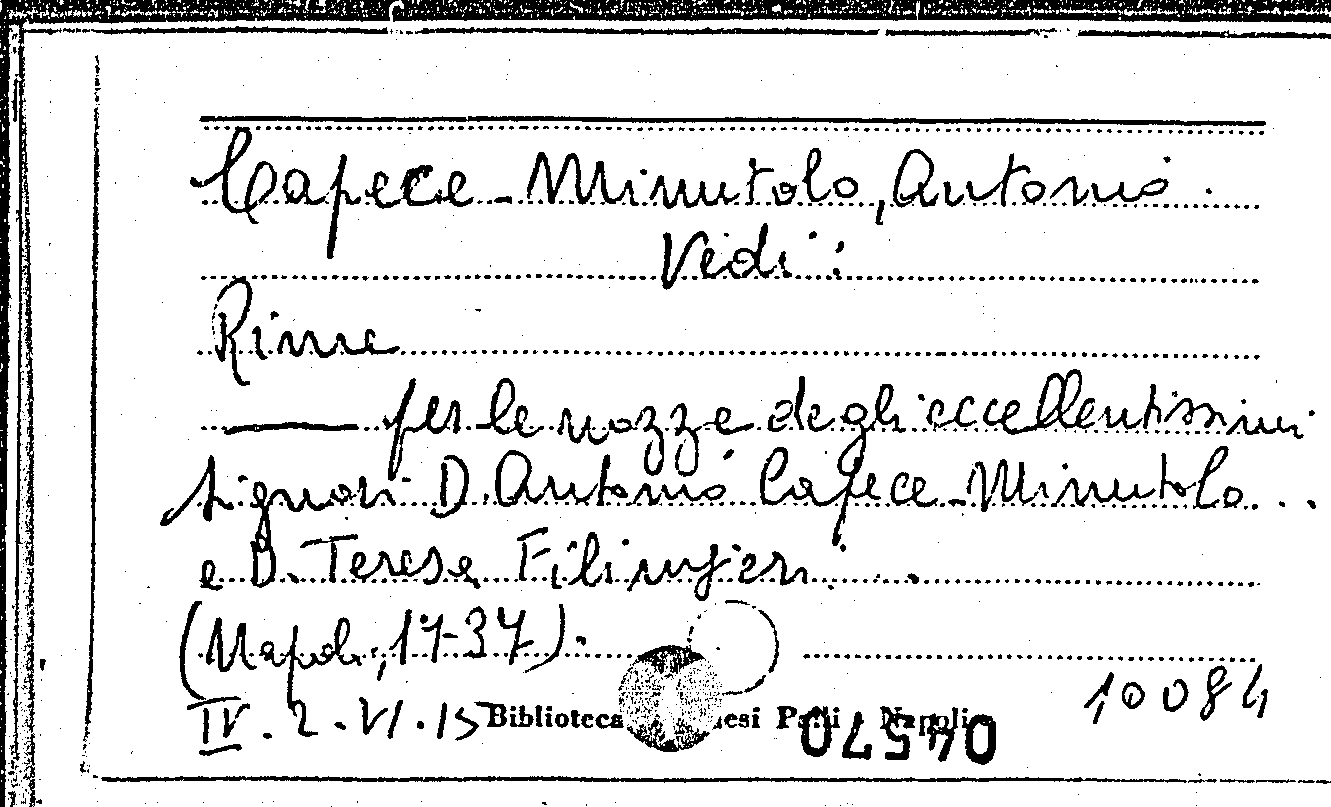 Capece-Minutolo, Antonio.
Vedi:
Rime
—— per le nozze degli eccellentissimi
signori D. Antonio Capece-Minutolo..
e D. Teresa Filingieri.
(Napoli, 1737).
IV. 2. VI. 15 Biblioteca Napoli 10084
04570